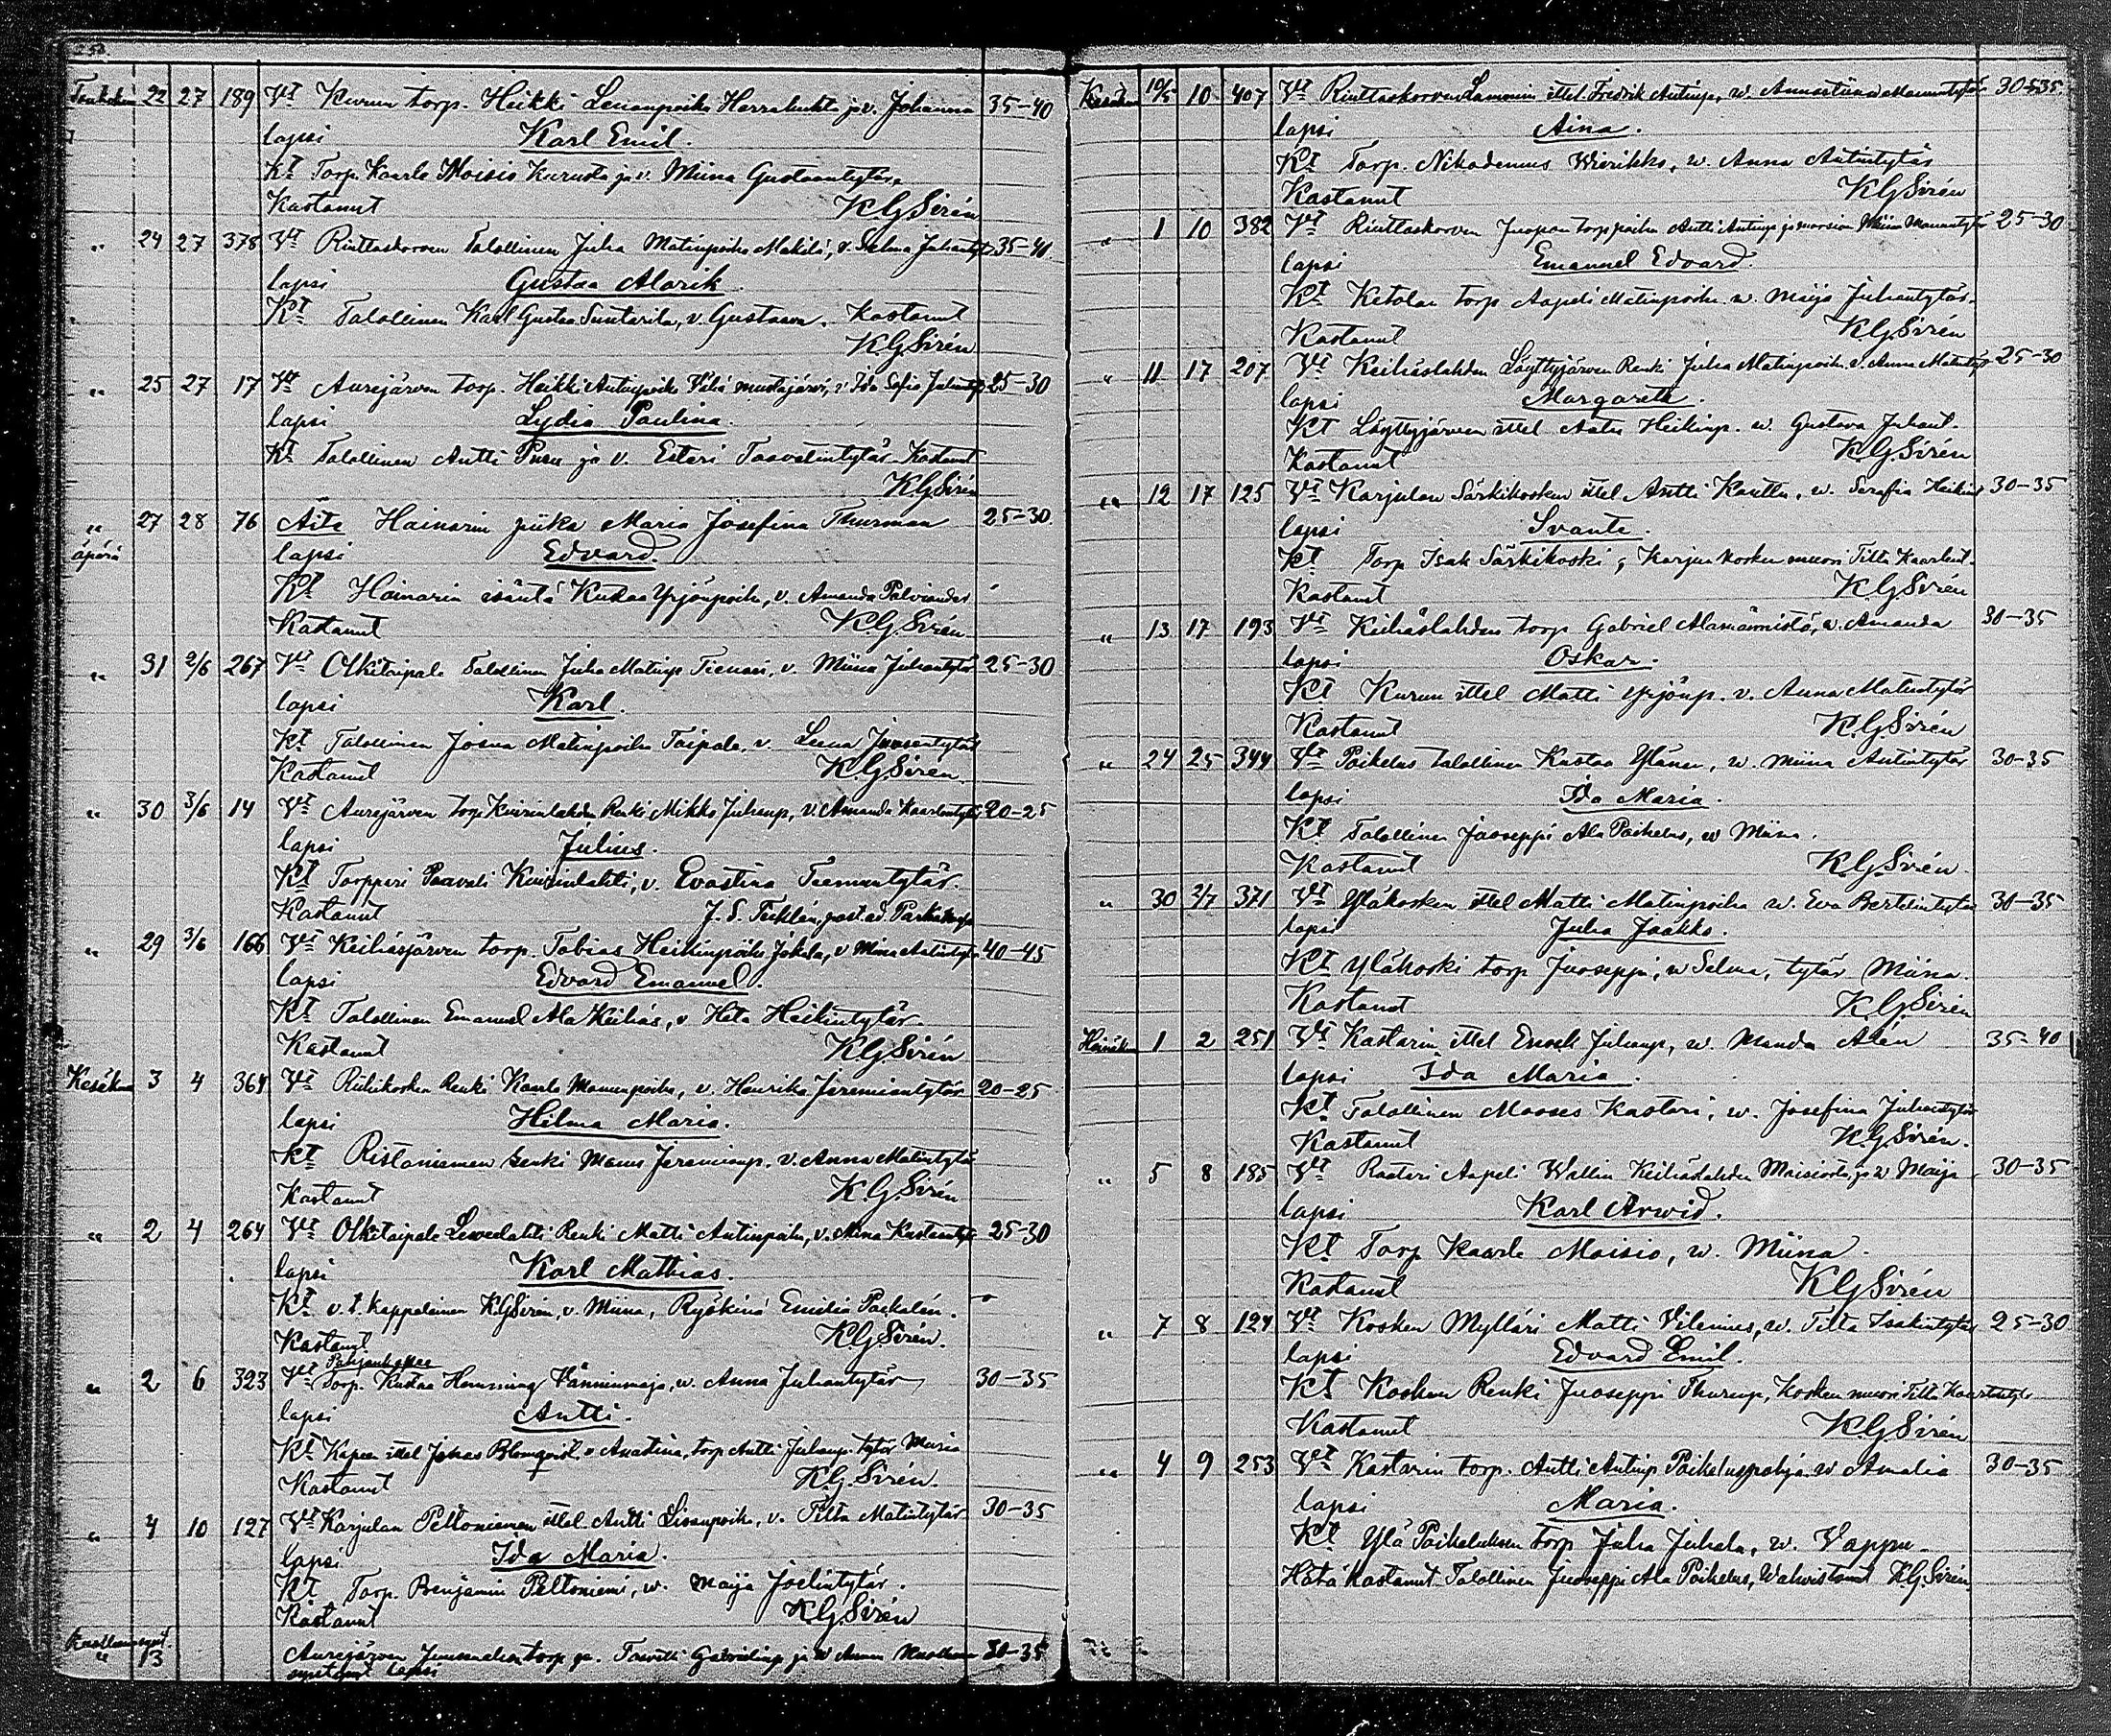 22 27 189 Vt Kurun torp. Heikki Leenanpoika Herralahti ja v. Johanna 35-40
lapsi Karl Emil.
Kt Torp. Kaarle Moisio Kurusta ja v. Miina Gustaantytär.
Kastanut KGSirén
" 24 27 378 Vt Riuttaskorven Talollinen Juha Matinpoika Mäkelä, v. Selma Juhantytär 35-40
lapsi Gustaa Alarik.
Kt Talollinen Karl Gustaa Suntarila, v. Gustaava. Kastanut
K.G.Sirén
" 25 27 17 Vt Aurejärven torp. Heikki Antinpoika Vähä mustajärvi, v. Ida Sofia 25-30
lapsi Lydia Paulina.
Kt Talollinen Antti Puru ja v. Esteri Taavetintytär Kastanut
KGSirén
" 27 28 76 Äiti Hainarin piika Maria Josefina Thurman 25-30
äpärä lapsi Edvard
Kt Hainarin isäntä Kustaa Yrjönpoika, v. Amanda
Kastanut K.G.Sirén
" 31 2/6 267 Vt Olkitaipale Talollinen Juha Matinp. v. Miina Juhantytär 25-30
lapsi Karl.
Kt Talollinen Josua Matinpoika Taipale, v. Leena
Kastanut KGSirén
" 30 3/6 14 Vt Aurejärven torp. Kuirinlahden Renki Mikko Juhanp, v. Amanda Kaarlentytär 20-25
lapsi Julius.
Kt Torppari Paavali Kuirinlahti, v. Evastina
Kastanut J. S.
" 29 3/6 166 Vt Keihäsjärven torp. Tobias Heikinpoika Jokela, v Miina Antintytär 40-45
lapsi Edvard Emanuel.
Kt Talollinen Emanuel Ala Keihäs, v. Heta Heikintytär.
Kastanut K.G.Sirén
Kesäkuu 3 4 364 Vt Riihikosken Renki Kaarle Manunpoika, v. Henrika Jeremiantytär 20-25
lapsi Hilma Maria.
Kt Ristaniemen Renki Manu Jeremianp. v. Anna Matintytär
Kastanut K.G.Sirén
" 2 4 264 Vt Olkitaipale Renki Matti Antinpoika, v. Miina 25-30
lapsi Karl Mathias.
Kt v. t. kappalainen KGSirén, v. Miina, Ryökinä Emilia
Kastanut K.G.Sirén.
Pohjankapee
" 2 6 323 Vt Torp. Kustaa Henning Vänninmaja, w. Anna Juhantytär 30-35
lapsi Antti.
Kt Kapee ittel Jonas Blomqvist v Anastina, torp Antti Juhanp. tytär Maria
Kastanut K.G.Sirén.
" 4 10 127 Vt Karjulan Peltoniemen ittel. Antti Liisanpoika, v. Tilta Matintytär 30-35
lapsi Ida Maria.
Kt Torp. Benjamin Peltoniemi, w. Maija Joelintytär.
Kastanut K.G.Sirén
" 13 Aurejärven torp. Taavetti ja w Anna 30-35
lapsi
Kesäkuu 10/5 10 407 Vt Riuttaskorven Lammin ittel. Fredrik Antinp, w. Annastiina Manuntytär 30-35
lapsi Aina.
Kt Torp. Nikodemus Wierikko, w. Anna Antintytär
Kastanut KGSirén
" 1 10 382 Vt Riuttaskorven torp poika Antti Antinp ja morsian Miina Manuntytär 25-30
lapsi Emanuel Edvard.
Kt Ketolan torp Aapeli Matinpoika w. Maija Juhantytär.
Kastanut KGSirén
" 11 17 207 Vt Keihäslahden Löyttyjärven Renki Juha Matinpoika v. Anna 25-30
lapsi Margareta.
Kt Löyttyjärven ittel Antti Heikinp. w. Gustava Juhant.
Kastanut K.G.Sirén
" 12 17 125 Vt Karjulan Särkikosken ittel Antti w. Serafia Heikint 30-35
lapsi Svante.
Kt Torp Isak Särkikoski, Karjun kosken muori Tilta Kaarlent.
Kastanut KGSirén
" 13 17 193 Vt Keihäslahden torp Gabriel w. Amanda 30-35
lapsi Oskar.
Kt Kurun ittel Matti Yrjönp. v. Anna Matintytär
Kastanut K.G.Sirén
" 24 25 344 Vt Poikelus talollinen Kustaa Ylänen, w. Miina Antintytär 30-35
lapsi Ida Maria.
Kt Talollinen Juoseppi Ala Poikelus, w Miina.
Kastanut K.G.Sirén.
" 30 2/7 371 Vt Yläkosken ittel Matti Matinpoika w. Eva 30-35
lapsi Juha Jaakko.
Kt Yläkoski torp Juoseppi, w Selma, tytär Miina.
Kastanut K.G.Sirén
Heinäkuu 1 2 251 Vt Kastarin ittel Enock Juhanp, w. Manda Alén 35-40
lapsi Ida Maria.
Kt Talollinen Mooses Kastari, w. Josefina Juhantytär
Kastanut K.G.Sirén.
" 5 8 185 Vt Raatari Aapeli Wallin Keihäslahden ja w Maija 30-35
lapsi Karl Arwid.
Kt Torp Kaarle Moisio, w. Miina.
Kastanut KGSirén
" 7 8 124 Vt Kosken Mylläri Matti Vilenius, w. Tilta Isakintytär 25-30
lapsi Edvard Emil.
Kt Kosken Renki Juoseppi kosken muori Tilta Kaarlentytär
Kastanut K.G.Sirén
" 4 9 253 Vt Kastarin torp. Antti Antinp Poikeluspohja w Amalia 30-35
lapsi Maria.
Kt Ylä Poikeluksen torp Juha Juhala, w. Vappu.
Hätä kastanut Talollinen Juoseppi Ala Poikelus, Wahvistanut K.G.Sirén